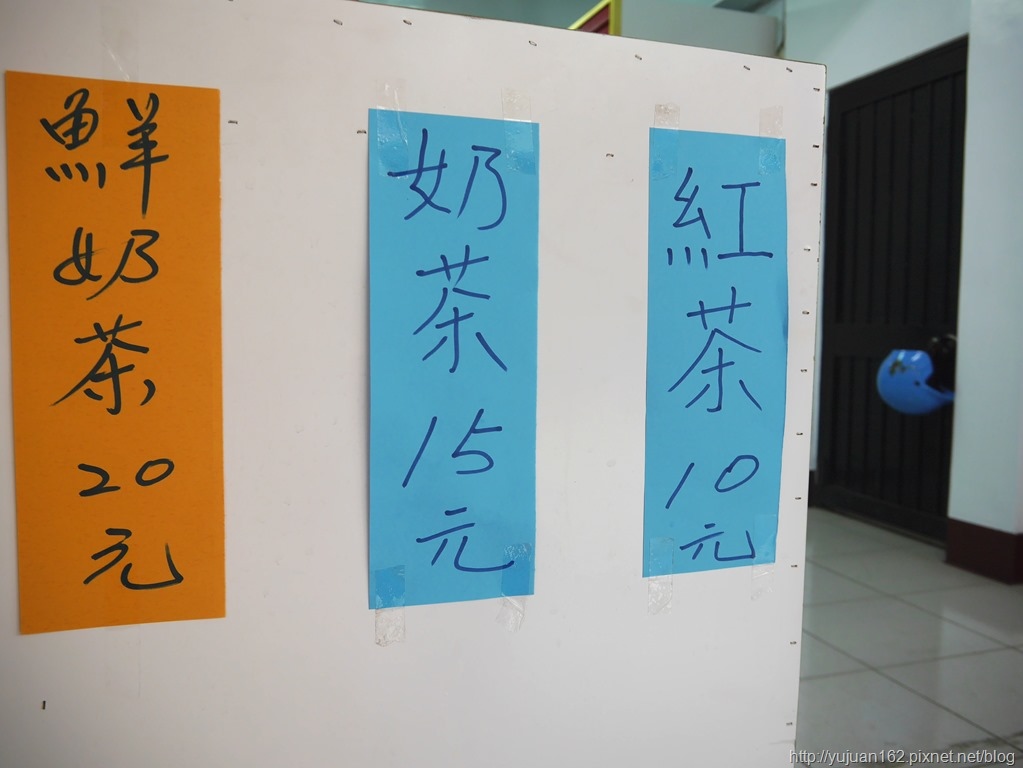 鮮奶茶20元
奶茶15元
紅茶10元
http://yujuan162.pixnet.net/blog